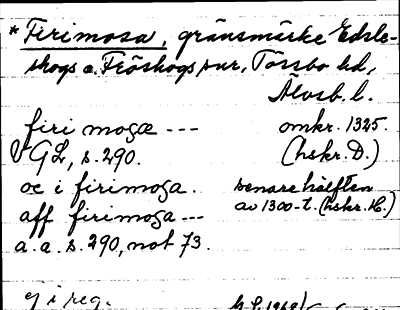 *Firimosa, gränsmärke Edsle-
skogs o. Fröskogs snr, Tössbo hd,
Älvsb. l.
firi mosæ --- omkr. 1325.
VGL, s. 290. (hskr. D.)
oc i firimosa. senare hälften
aff firimosa --- av 1300-t. (hskr. H.)
a. a. s. 290, not 73.
ej i reg.